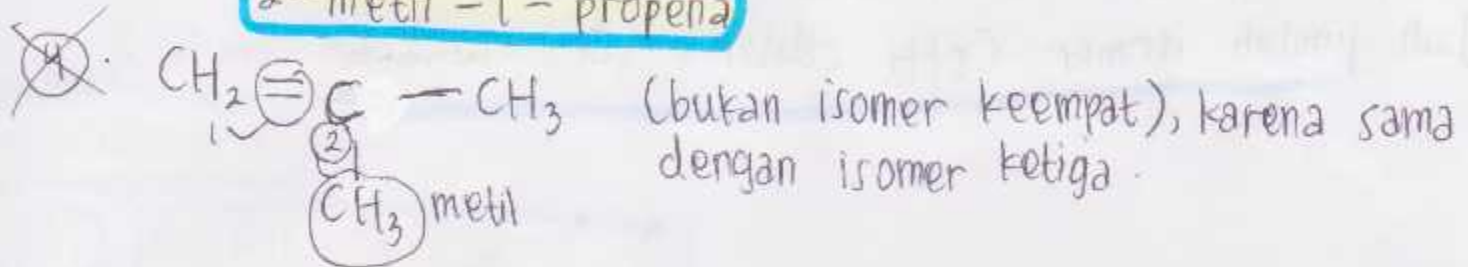 2 metil - 1 - propena
4. CH2 = C — CH3 (bukan isomer keempat), karena sama
1 2 dengan isomer ketiga.
CH3 metil